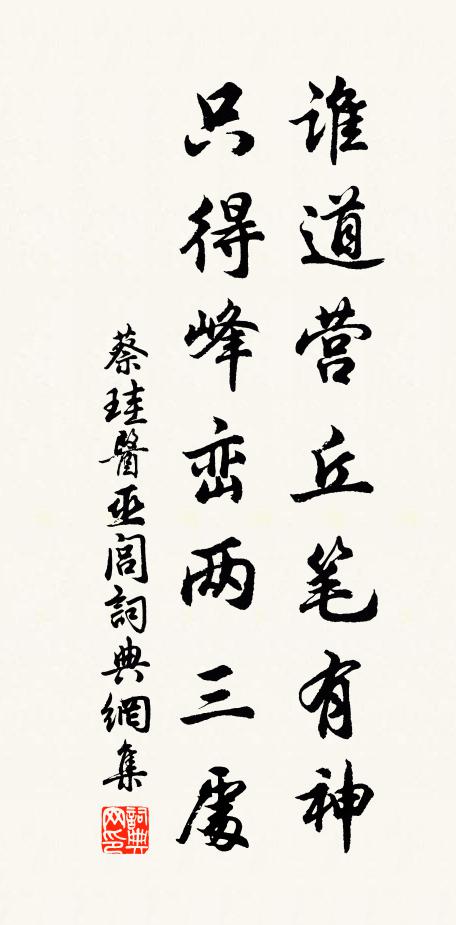 谁道营丘笔有神
只得峰峦两三處
蔡珪醫巫闾詞典網集
詞典网印